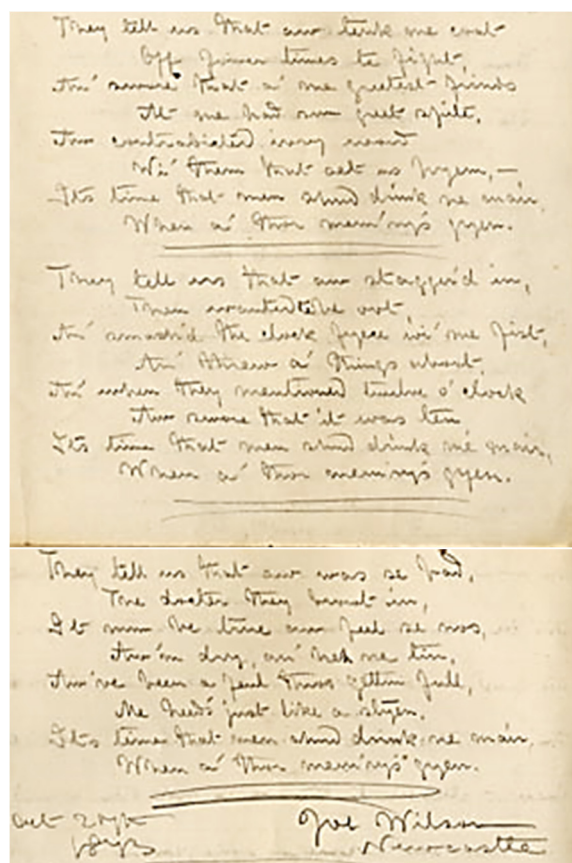 They tell us that aw teuk me coat
Off fower times te fight,
An' swore that a' me greetest frinds
At me had sum greet spite,
Aw contradicted ivvry word
Wi' them that act as
It's time that men shud drink ne mair,
When a' thor mem'ry's gyen.
They tell us that aw stagger'd in,
Then wanted te be oot,
An' smash'd the clock fyece wi' me fist,
An' threw a' things aboot,
An' when they mentioned twelve o' clock
Aw swore that it was ten
It's time that men shud drink ne mair,
When a' thor mem'ry's gyen.
They tell us that aw was se bad,
The docter they browt in,
It mun be true aw feel se noo,
Aw'm dry, an' hes ne tin,
Aw've been a feul thus gettin full,
Me heed's just like a styen,
It's time that men shud drink ne mair,
When a' thor mem'ry's gyen.
Oct
Joe Wilson
Newcastle